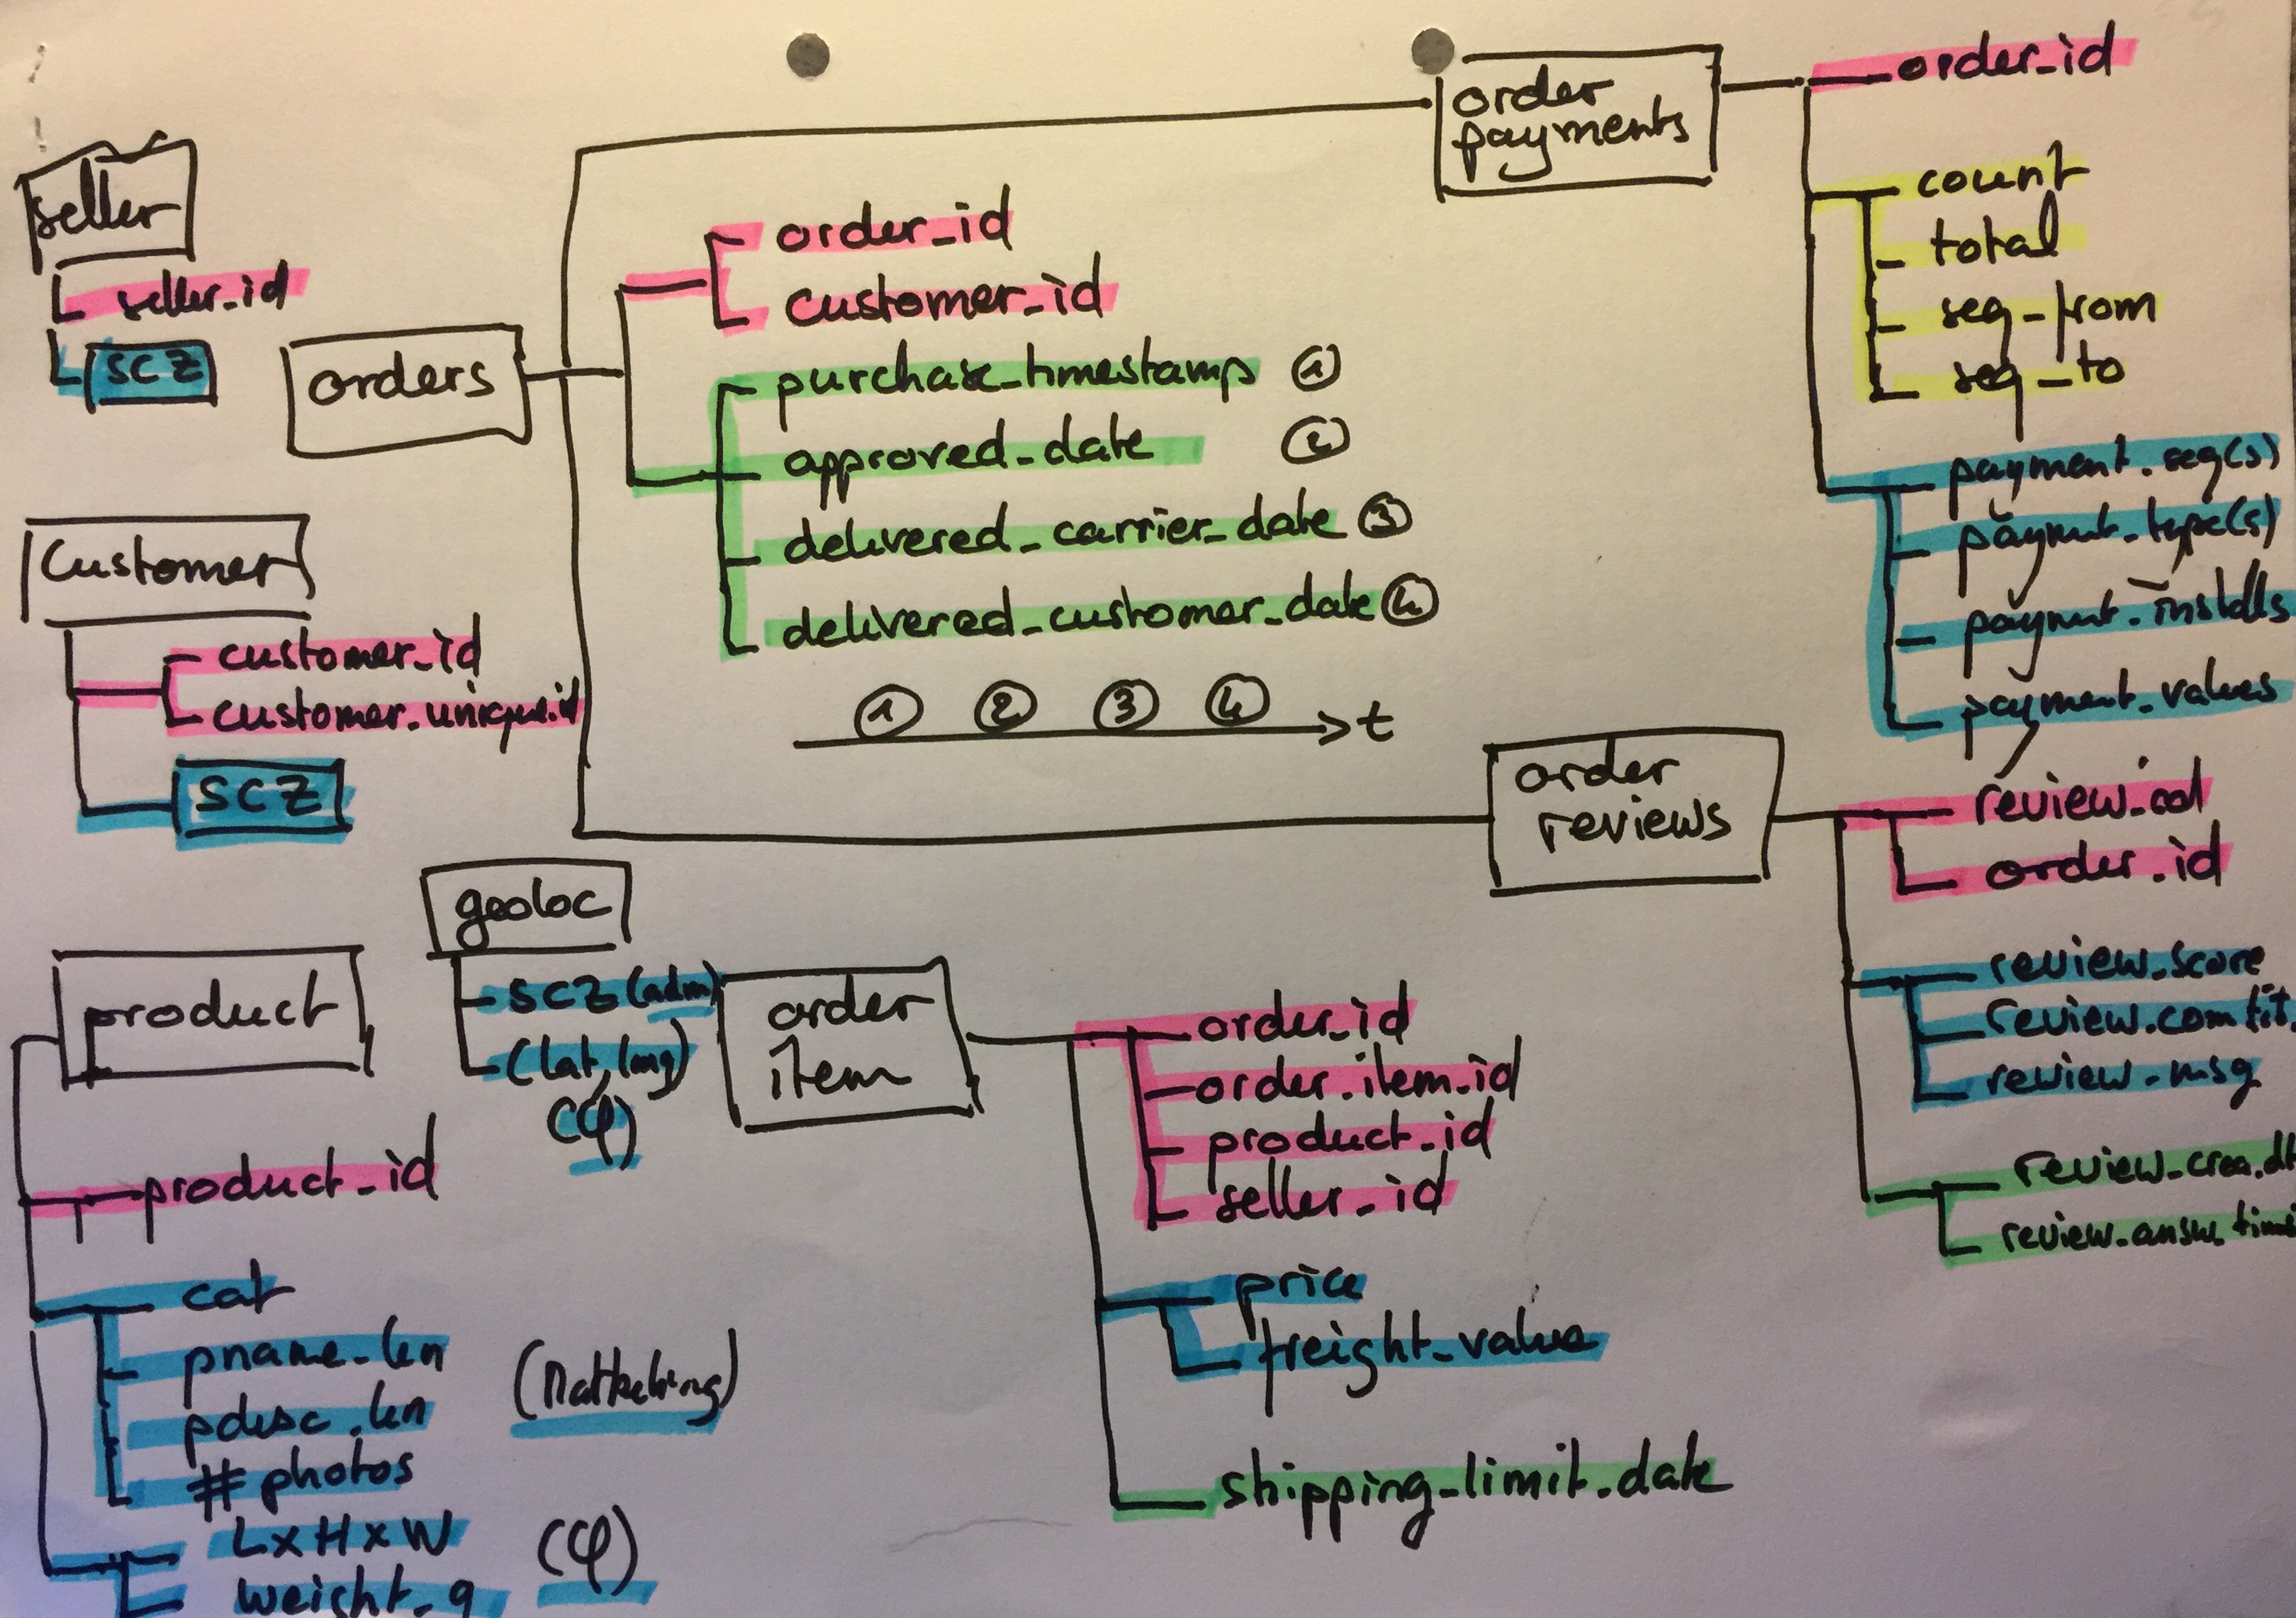 seller
seller_id
SCZ
orders
order_id
customer_id
purchase_timestamp ①
approved_date ②
delivered_carrier_date ③
delivered_customer_date ④
① ② ③ ④
t
order
payments
order_id
count
total
seq_from
seq_to
payment.seq(s)
paymnt_type(s)
paymnt_installs
payment_values
Customer
customer_id
customer.unique.id
SCZ
order
reviews
order.id
review_score
review.com.tit.
review_msg
review_crea.dt
review.answ.time
geoloc
SCZ (adm)
(lat, lng)
(φ)
product
product_id
cat
pname_len
pdesc.len
# photos
(Marketing)
LxHxW
weight_g
(φ)
order
item
order_id
order.item.id
product_id
seller_id
price
freight_value
shipping_limit.date